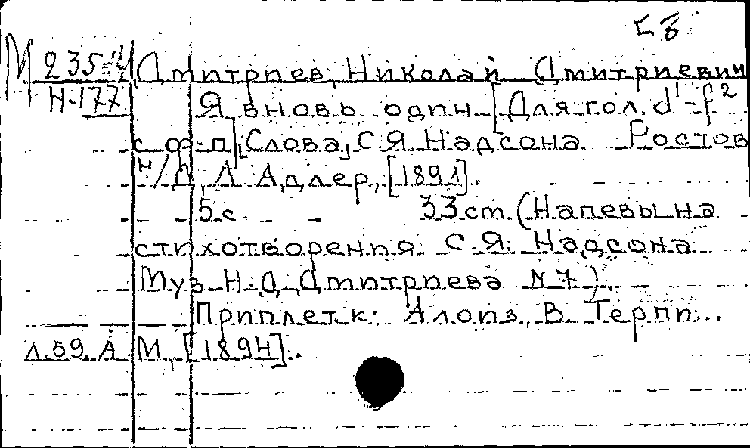 М 235-4 Дмитриев, Николай Дмитриевич
Н-177 Я вновь один [Для гол. d¹-f²
с ф-п], Слова С.Я. Надсона Ростов
н/Д, Л. Адлер, [1891].
5 с. 33 cm. (Напевы на
стихотворения С.Я. Надсона
Муз. Н.Д. Дмитриева N 7).
Приплет. к: Алоиз, В. Терпи...
л. 59 А М, [1894].